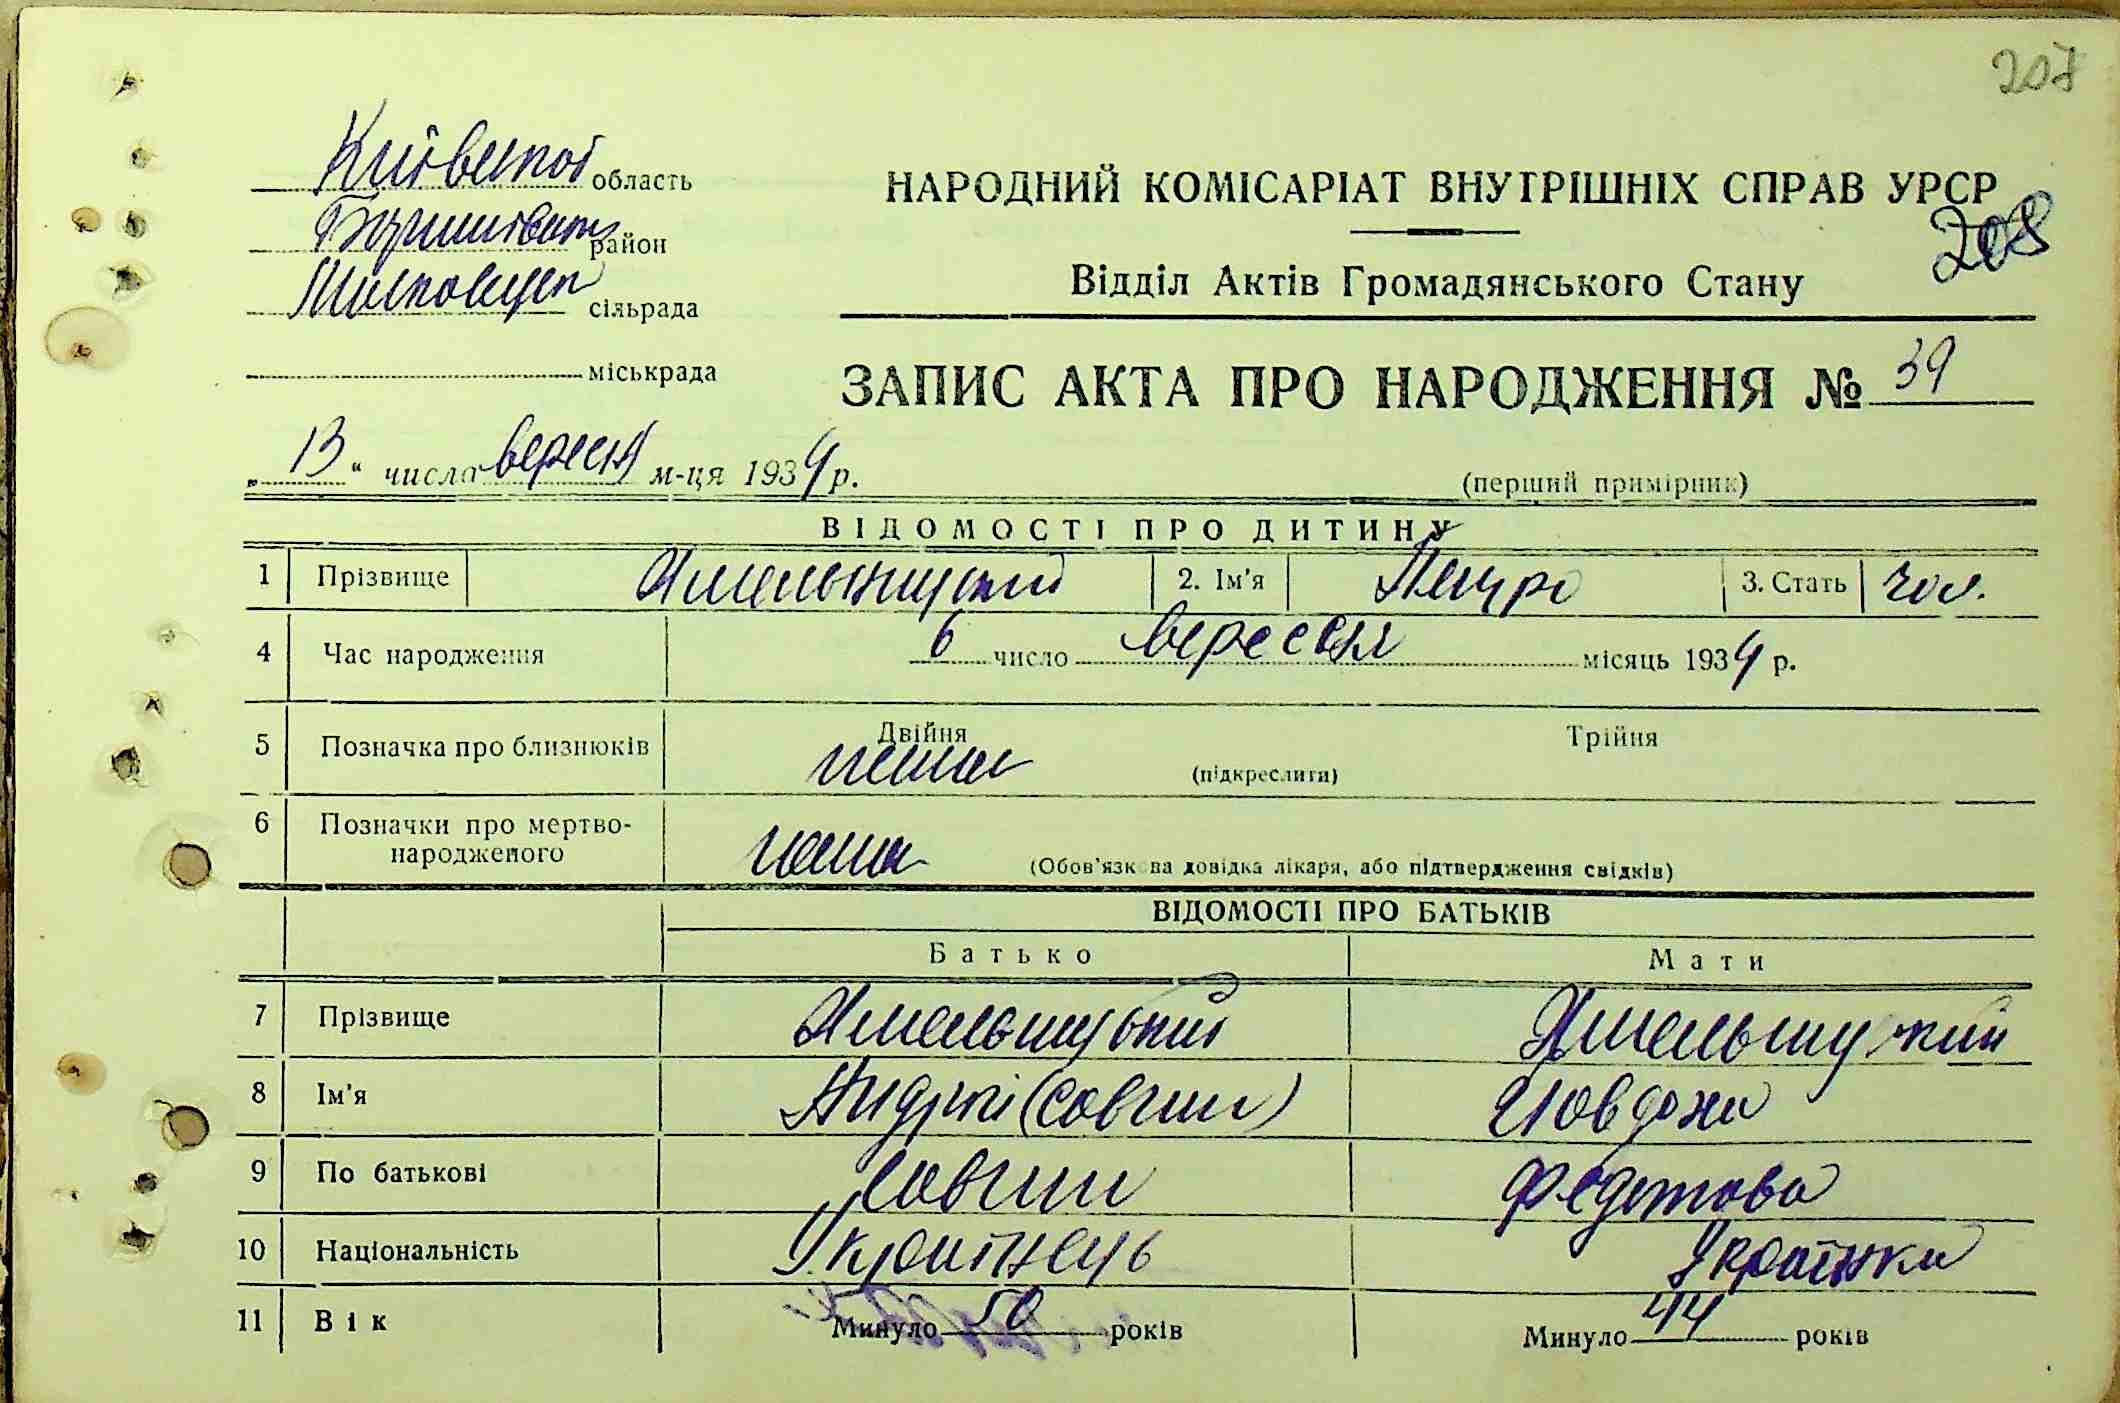 207
Київської область
НАРОДНИЙ КОМІСАРІАТ ВНУТРІШНІХ СПРАВ УРСР
208
район
Відділ Актів Громадянського Стану
сільрада
міськрада
ЗАПИС АКТА ПРО НАРОДЖЕННЯ № 39
„ 13 “ числа вересня м-ця 1934 р.
(перший примірник)
ВІДОМОСТІ ПРО ДИТИНУ
1 Прізвище Хмельницький 2. Ім'я Петро 3. Стать чол.
4 Час народження 6 число вересня місяць 1934 р.
5 Позначка про близнюків Двійня Трійня
нема (підкреслити)
6 Позначки про мертво-
народженого нема (Обов'язкова довідка лікаря, або підтвердження свідків)
ВІДОМОСТІ ПРО БАТЬКІВ
Батько Мати
7 Прізвище Хмельницький Хмельницький
8 Ім'я Андрій (Савгин) Йовдоха
9 По батькові Савгин Федотова
10 Національність Українець Українка
11 Вік Минуло 50 років Минуло 44 років